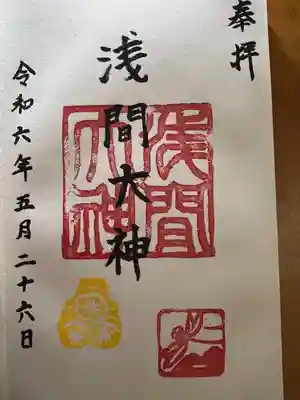 奉拝
浅間大神
浅間
大神
令和六年五月二十六日